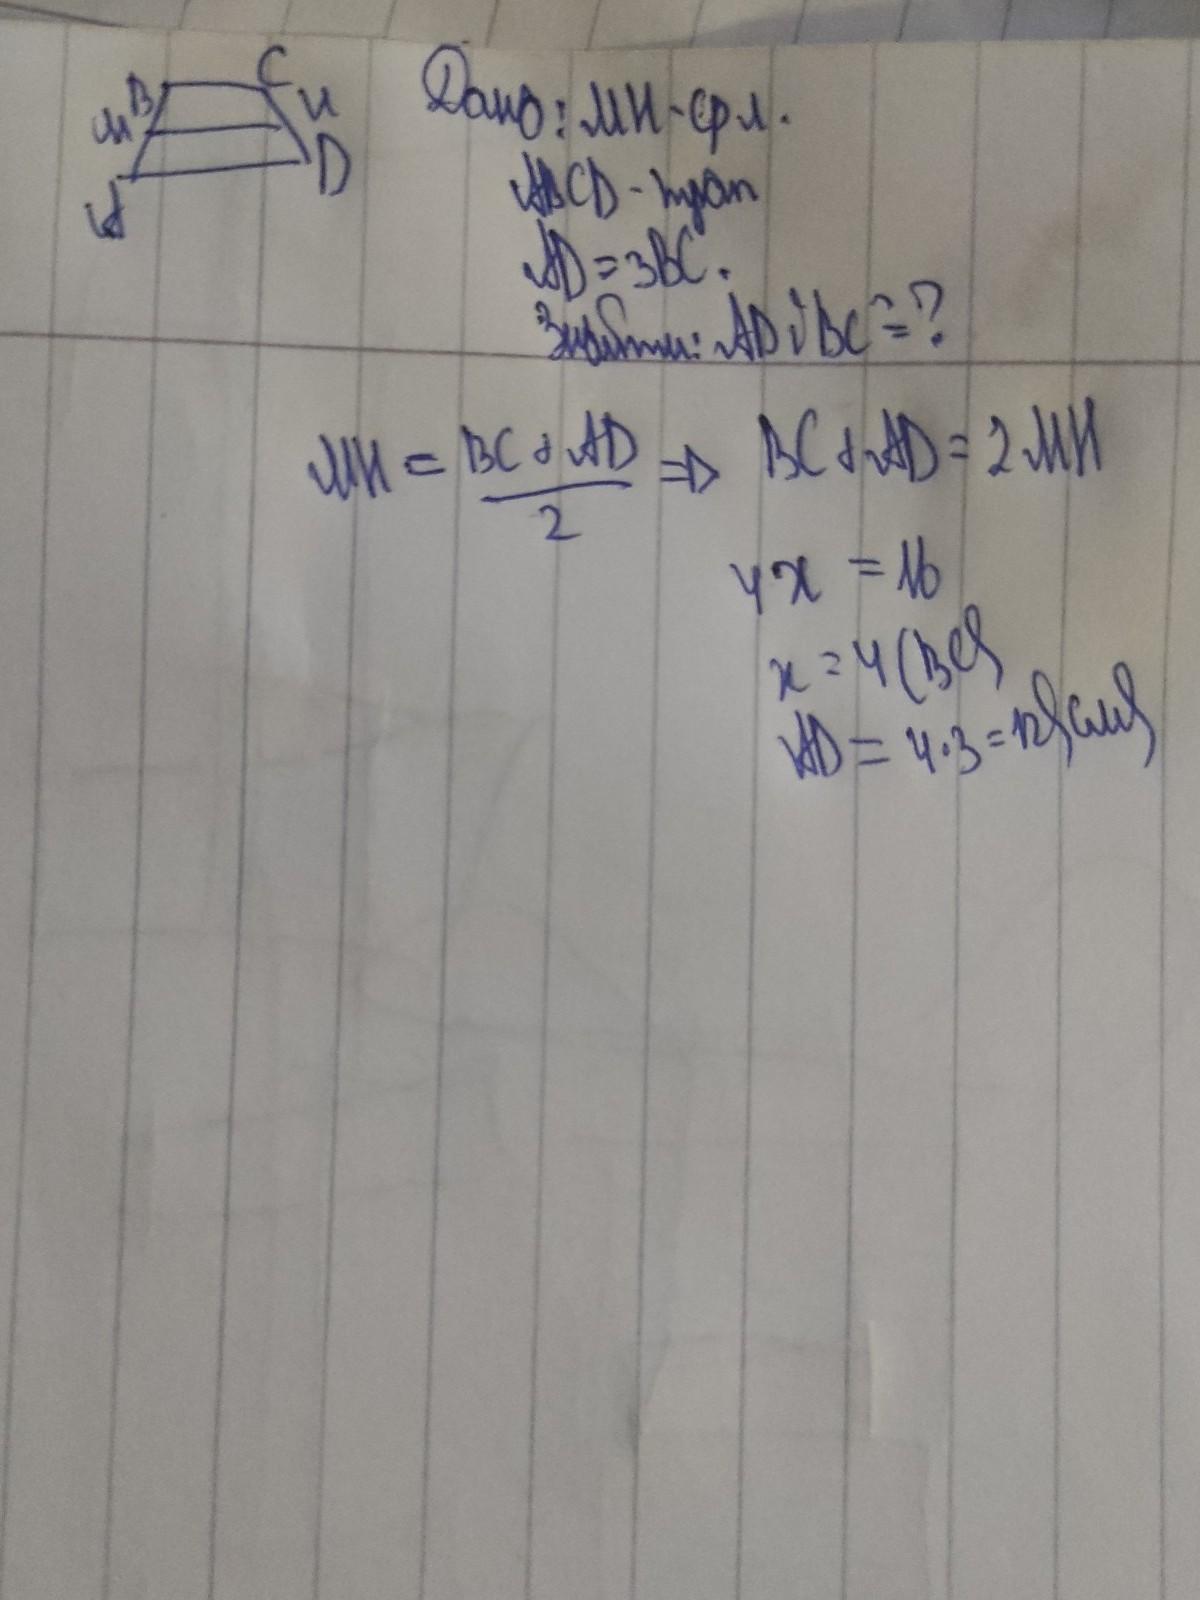 B C
M H
A D
Дано: MH - ср л.
ABCD - трап
AD = 3BC.
Знайти: AD і BC = ?
MH = BC + AD / 2 ⇒ BC + AD = 2MH
4x = 16
x = 4 (BC)
AD = 4·3 = 12 (см)